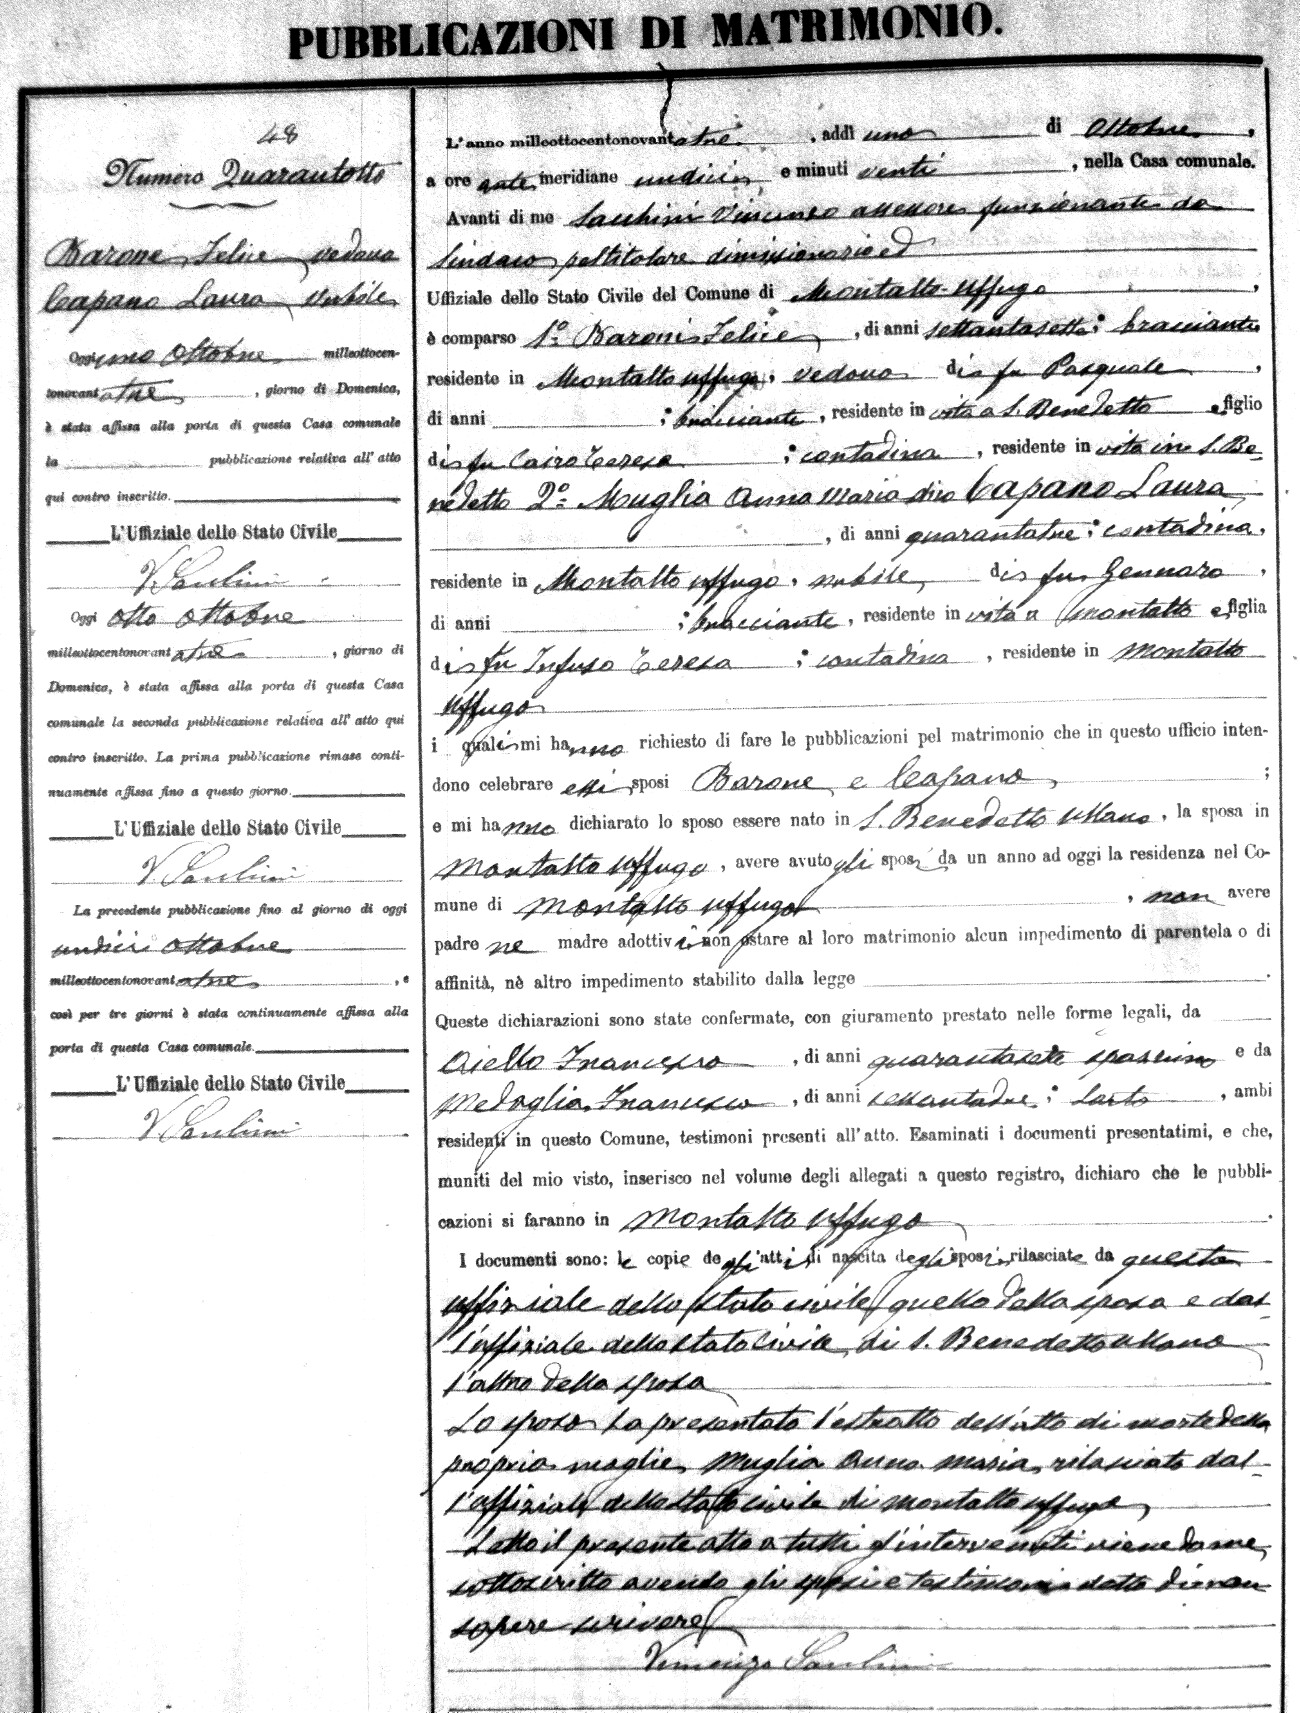 PUBBLICAZIONI DI MATRIMONIO.
48
Numero Quarantotto
Barone Felice vedovo
Capano Laura nubile
Oggi uno Ottobre milleottocen-
tonovantatre, giorno di Domenica,
è stata affissa alla porta di questa Casa comunale
la pubblicazione relativa all' atto
qui contro inscritto.
L'Uffiziale dello Stato Civile
Oggi otto ottobre
milleottocentonovantatre, giorno di
Domenica, è stata affissa alla porta di questa Casa
comunale la seconda pubblicazione relativa all' atto qui
contro inscritto. La prima pubblicazione rimase conti-
nuamente affissa fino a questo giorno.
L'Uffiziale dello Stato Civile
La precedente pubblicazione fino al giorno di oggi
undici ottobre
milleottocentonovantatre, e
così per tre giorni è stata continuamente affissa alla
porta di questa Casa comunale.
L'Uffiziale dello Stato Civile
L'anno milleottocentonovantatre, addì uno di Ottobre,
a ore antemeridiane undici e minuti venti, nella Casa comunale.
Avanti di me Vincenzo assessore funzionante da
Sindaco pel titolare dimissionario ed
Uffiziale dello Stato Civile del Comune di Montalto Uffugo,
è comparso 1º Barone Felice, di anni settantasette; bracciante
residente in Montalto Uffugo, vedovo di fu Pasquale,
di anni ; bracciante, residente in vita a S. Benedetto e figlio
di fu Cairo Teresa ; contadina, residente in vita in S. Be-
nedetto 2º Muglia Anna Maria dico Capano Laura
, di anni quarantatre; contadina,
residente in Montalto Uffugo, nubile, di fu Gennaro,
di anni ; bracciante, residente in vita a Montalto e figlia
di fu Infuso Teresa ; contadina, residente in Montalto
Uffugo
i quali mi hanno richiesto di fare le pubblicazioni pel matrimonio che in questo ufficio inten-
dono celebrare essi sposi Barone e Capano ;
e mi hanno dichiarato lo sposo essere nato in S. Benedetto Ullano, la sposa in
Montalto Uffugo, avere avuto gli sposi da un anno ad oggi la residenza nel Co-
mune di Montalto Uffugo, non avere
padre ne madre adottivi, non ostare al loro matrimonio alcun impedimento di parentela o di
affinità, nè altro impedimento stabilito dalla legge .
Queste dichiarazioni sono state confermate, con giuramento prestato nelle forme legali, da
Aiello Francesco, di anni quarantasette e da
Medaglia Francesco, di anni sessantadue; Sarto, ambi
residenti in questo Comune, testimoni presenti all'atto. Esaminati i documenti presentatimi, e che,
muniti del mio visto, inserisco nel volume degli allegati a questo registro, dichiaro che le pubbli-
cazioni si faranno in Montalto Uffugo.
I documenti sono: le copie degli atti di nascita degli sposi rilasciate da questo
uffiziale dello stato civile quello della sposa e dal-
l'uffiziale dello stato civile di S. Benedetto Ullano
l'altro della sposa
Lo sposo ha presentato l'estratto dell'atto di morte della
propria moglie Muglia Anna Maria rilasciato dal-
l'uffiziale dello stato civile di Montalto Uffugo
Letto il presente atto a tutti gl'intervenuti viene da me
sottoscritto avendo gli sposi e testimoni detto di non
sapere scrivere